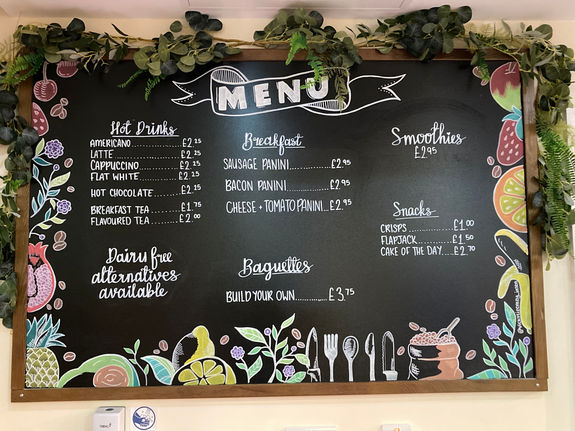 MENU
Hot Drinks
AMERICANO............£2.25
LATTE............£2.25
CAPPUCCINO............£2.25
FLAT WHITE............£2.25
HOT CHOCOLATE............£2.25
BREAKFAST TEA............£1.75
FLAVOURED TEA............£2.00
Dairy free
alternatives
available
Breakfast
SAUSAGE PANINI............£2.95
BACON PANINI............£2.95
CHEESE + TOMATO PANINI...£2.95
Baguettes
BUILD YOUR OWN............£3.75
Smoothies
£2.95
Snacks
CRISPS............£1.00
FLAPJACK............£1.50
CAKE OF THE DAY....£2.70